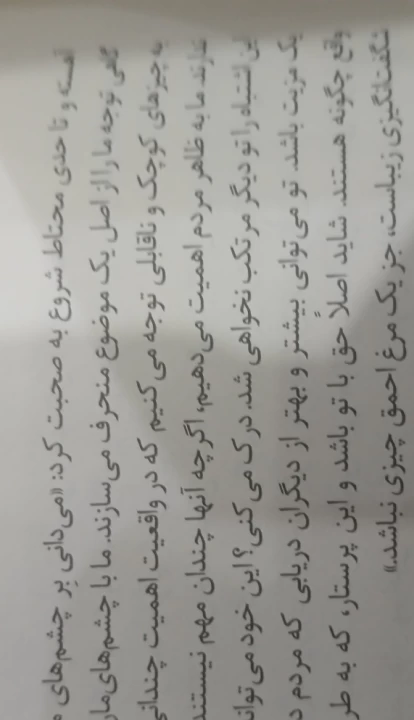 آهسته و تا حدی محتاط شروع به صحبت کرد: «می‌دانی پِر چشم‌های
گاهی توجه ما را از اصل یک موضوع منحرف می‌سازند. ما با چشم‌های‌مان
به چیزهای کوچک و ناقابلی توجه می‌کنیم که در واقعیت اهمیت چندانی
ندارند. ما به ظاهر مردم اهمیت می‌دهیم، اگرچه آنها چندان مهم نیستند
این اشتباه را تو دیگر مرتکب نخواهی شد. درک می‌کنی؟ این خود می‌تواند
یک مزیت باشد. تو می‌توانی بیشتر و بهتر از دیگران دریابی که مردم
واقع چگونه هستند. شاید اصلاً حق با تو باشد و این پرستار، که به
شگفت‌انگیزی زیباست، جز یک مرغ احمق چیزی نباشد.»